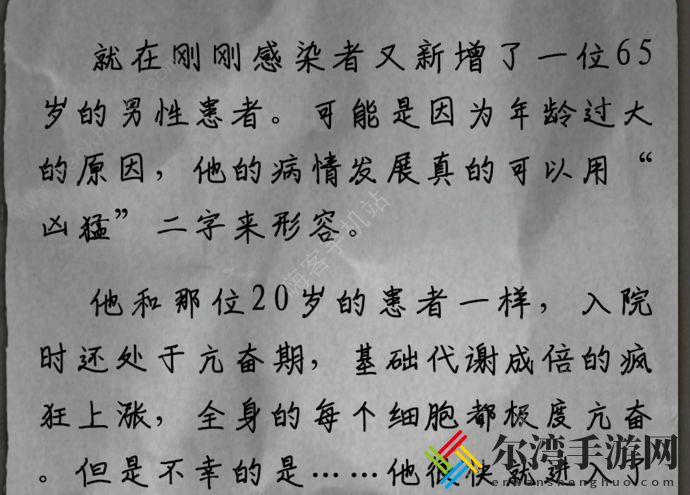 就在刚刚感染者又新增了一位65
岁的男性患者。可能是因为年龄过大
的原因，他的病情发展真的可以用“
凶猛”二字来形容。
他和那位20岁的患者一样，入院
时还处于亢奋期，基础代谢成倍的疯
狂上涨，全身的每个细胞都极度亢奋
。但是不幸的是……他很快就进入了
尔湾手游网